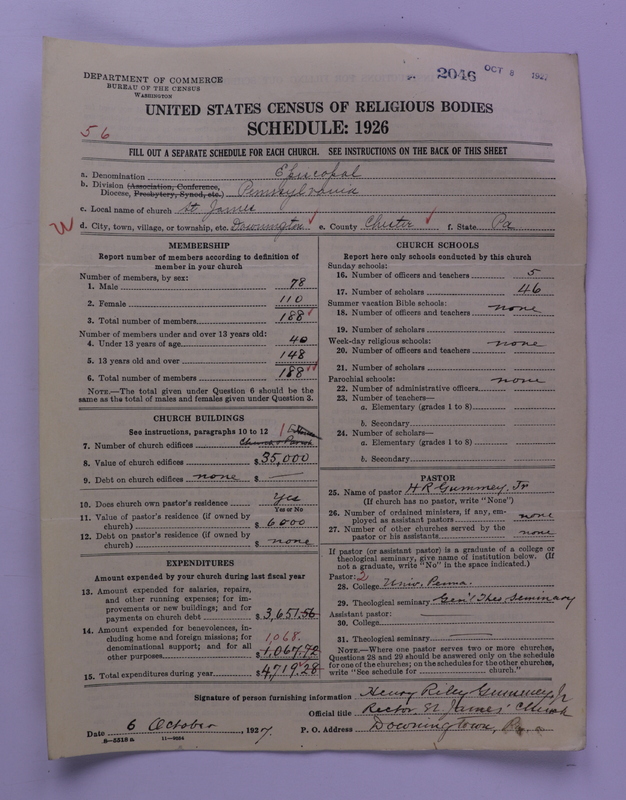 DEPARTMENT OF COMMERCE
BUREAU OF THE CENSUS
WASHINGTON
2046 OCT 8 1927
UNITED STATES CENSUS OF RELIGIOUS BODIES
56
SCHEDULE: 1926
FILL OUT A SEPARATE SCHEDULE FOR EACH CHURCH. SEE INSTRUCTIONS ON THE BACK OF THIS SHEET
a. Denomination Episcopal
b. Division (Association, Conference,
Diocese, Presbytery, Synod, etc.) Pennsylvania
c. Local name of church St. James
W d. City, town, village, or township, etc. Downington e. County Chester f. State Pa
MEMBERSHIP
Report number of members according to definition of
member in your church
Number of members, by sex:
1. Male 78
2. Female 110
3. Total number of members 188
Number of members under and over 13 years old:
4. Under 13 years of age 40
5. 13 years old and over 148
6. Total number of members 188
NOTE.—The total given under Question 6 should be the
same as the total of males and females given under Question 3.
CHURCH BUILDINGS
See instructions, paragraphs 10 to 12 1
7. Number of church edifices Church & Parish
8. Value of church edifices $ 35,000
9. Debt on church edifices none $ —
10. Does church own pastor's residence? Yes
Yes or No
11. Value of pastor's residence (if owned by
church) $ 6000
12. Debt on pastor's residence (if owned by
church) $ none
EXPENDITURES
Amount expended by your church during last fiscal year
13. Amount expended for salaries, repairs,
and other running expenses; for im-
provements or new buildings; and for
payments on church debt $ 3,651.56
14. Amount expended for benevolences, in-
cluding home and foreign missions; for 1,068.
denominational support; and for all
other purposes $ 1,067.72
15. Total expenditures during year $ 4,719.28
CHURCH SCHOOLS
Report here only schools conducted by this church
Sunday schools:
16. Number of officers and teachers 5
17. Number of scholars 46
Summer vacation Bible schools:
18. Number of officers and teachers none
19. Number of scholars
Week-day religious schools:
20. Number of officers and teachers none
21. Number of scholars
Parochial schools: none
22. Number of administrative officers
23. Number of teachers—
a. Elementary (grades 1 to 8)
b. Secondary
24. Number of scholars—
a. Elementary (grades 1 to 8)
b. Secondary
PASTOR
25. Name of pastor H R Gummey, Jr
(If church has no pastor, write "None")
26. Number of ordained ministers, if any, em-
ployed as assistant pastors none
27. Number of other churches served by the
pastor or his assistants none
If pastor (or assistant pastor) is a graduate of a college or
theological seminary, give name of institution below. (If
not a graduate, write "No" in the space indicated.)
Pastor: 2
28. College Univ. Penna.
29. Theological seminary Gen'l Theo Seminary
Assistant pastor:
30. College —
31. Theological seminary —
NOTE.—Where one pastor serves two or more churches,
Questions 28 and 29 should be answered only on the schedule
for one of the churches; on the schedules for the other churches,
write "See schedule for church."
Signature of person furnishing information Henry Riley Gummey, Jr
Official title Rector St James' Church
Date 6 October, 1927. P. O. Address Downingtown, Pa.
8-5518a 11-9024